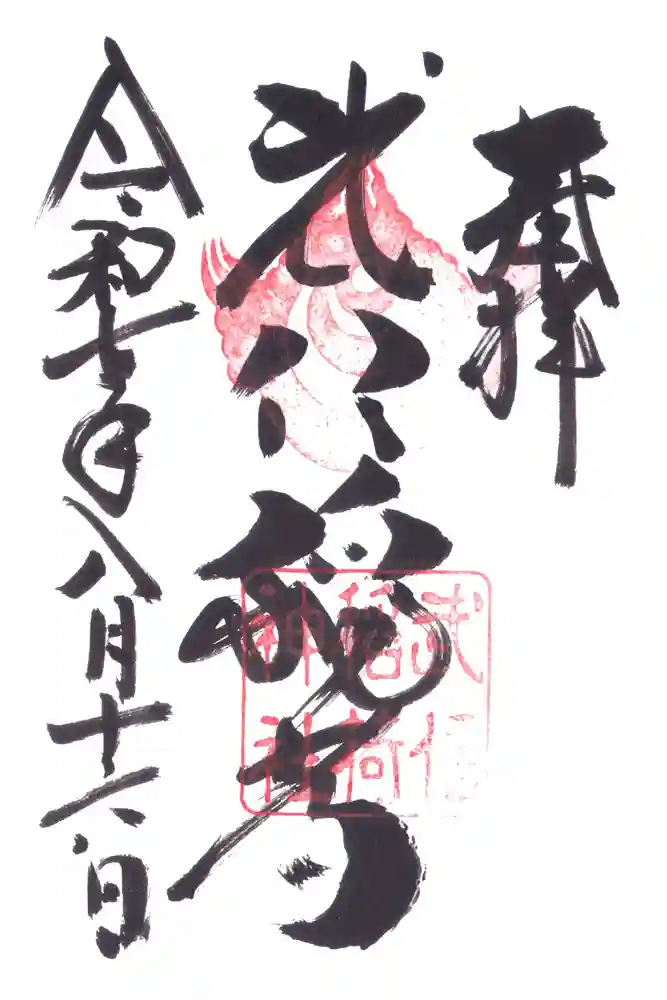 奉拝
武信稲荷
令和七年八月十六日
武信
稲荷
神社